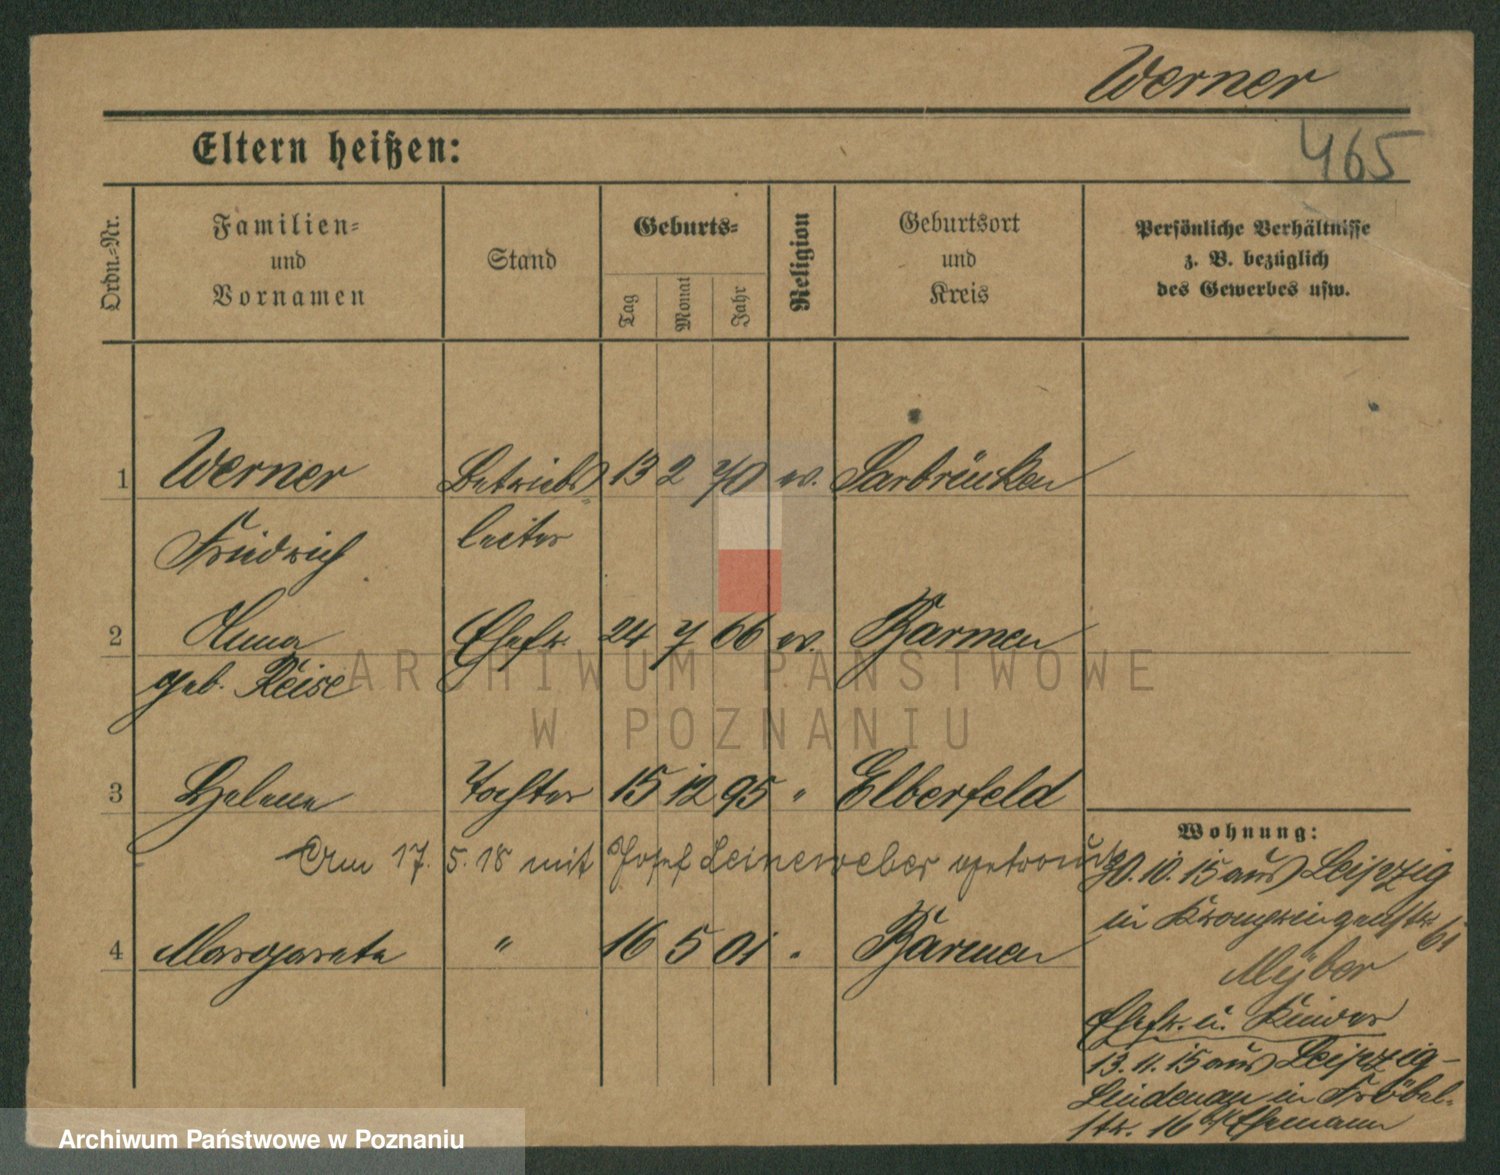 Werner
465
Eltern heißen:
Ordn.-Nr.
Familien-
und
Vornamen
Stand
Geburts-
Tag
Monat
Jahr
Religion
Geburtsort
und
Kreis
Persönliche Verhältnisse
z. B. bezüglich
des Gewerbes usw.
1 Werner Betriebs- 13 2 70 ev. Sarbrücken
Friedrich leiter
2 Anna Ehefr. 24 7 66 ev. Barmen
geb. Reise
3 Helene Tochter 15 12 95 " Elberfeld
Am 17. 5. 18 mit Josef Leineweber getraut
4 Margarete " 16 5 01 " Barmen
Wohnung:
30. 10. 15 aus Leipzig
in Kronprinzenstr.
61
Ehefr. u. Kinder
13. 11. 15 aus Leipzig-
Lindenau in Fröbel-
str. 16 Ehemann
ARCHIWUM PAŃSTWOWE
W POZNANIU
Archiwum Państwowe w Poznaniu